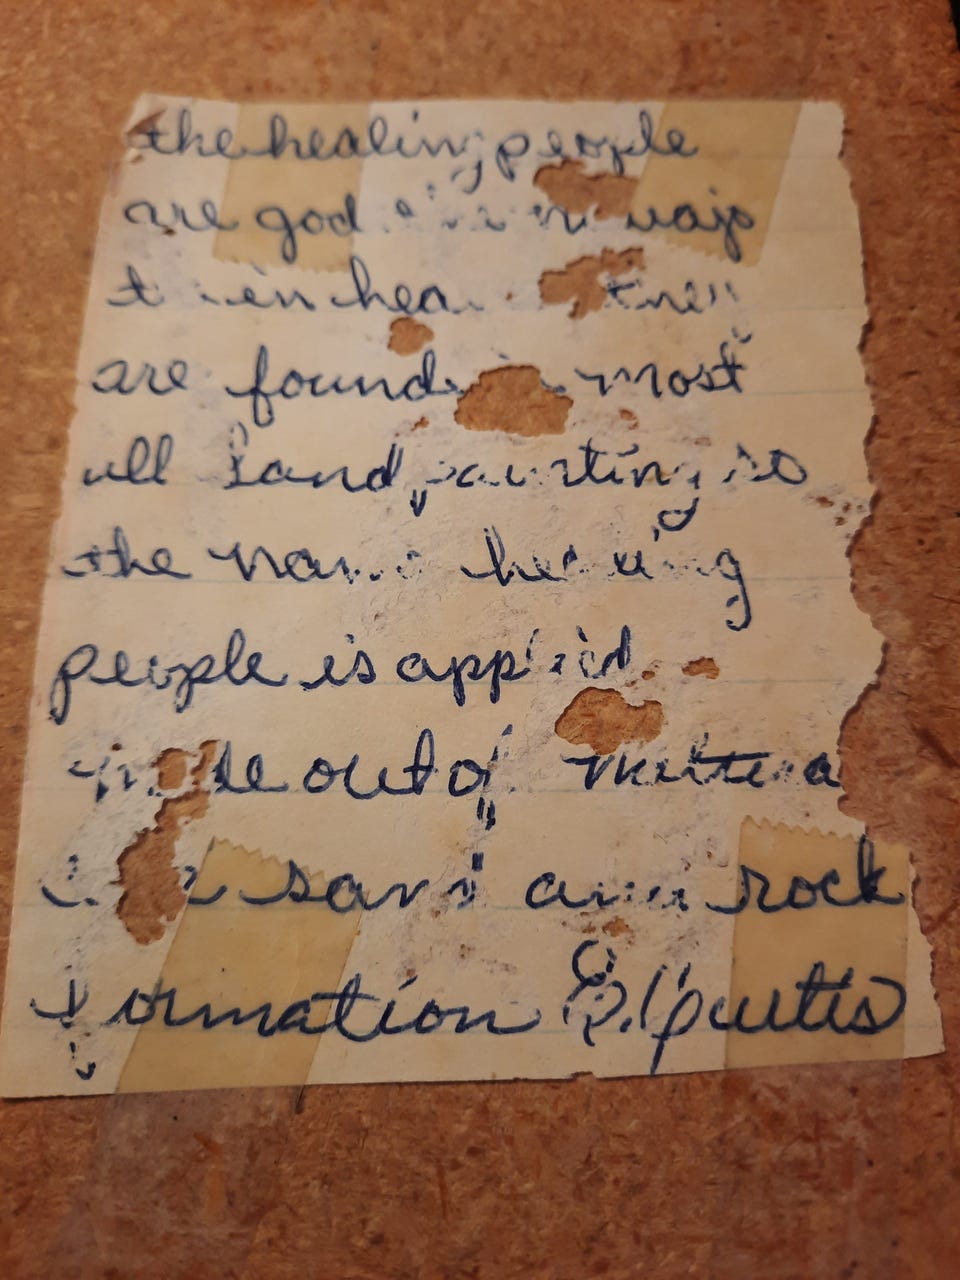 the healing people
are god ways
hea
are found in most
all Sand painting so
the name healing
people is applied
made out of
sand and rock
formation E. Curtis